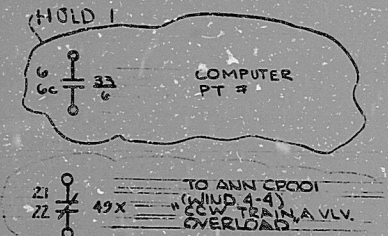 HOLD 1
6
6C
33
6
COMPUTER
PT #
21
22
49X
TO ANN CP001
(WIND 4-4)
"CCW TRAIN,A VLV.
OVERLOAD